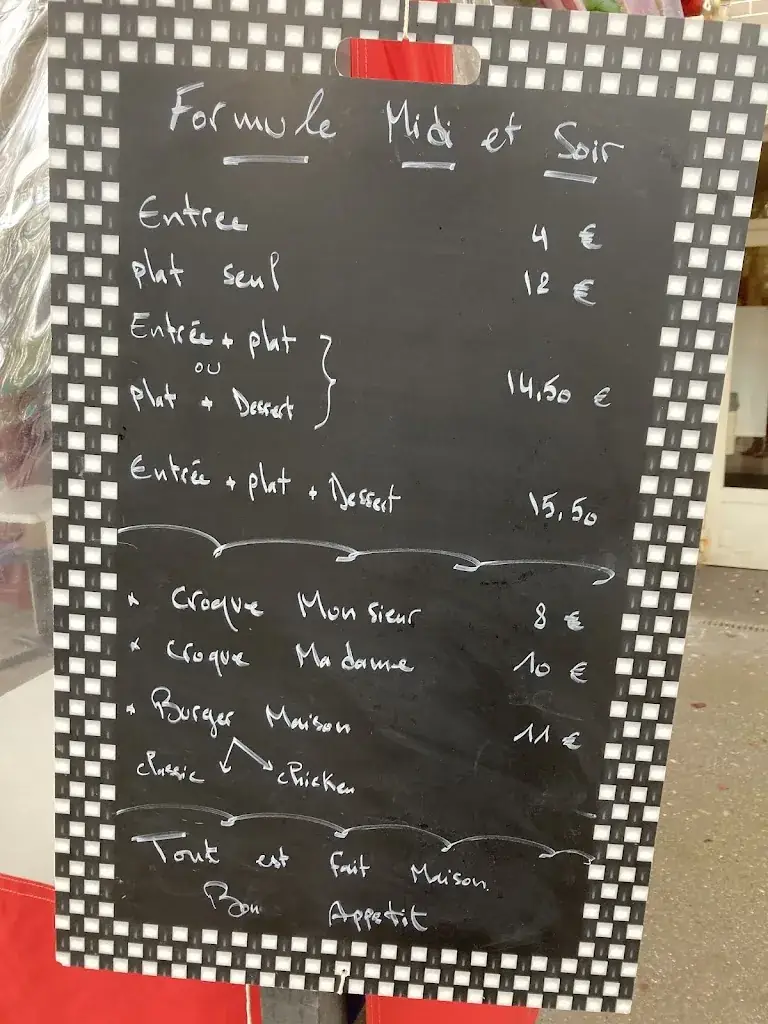 Formule Midi et Soir
Entree 4 €
plat seul 12 €
Entrée + plat
ou
plat + Dessert 14,50 €
Entrée + plat + Dessert 15,50
* Croque Monsieur 8 €
* Croque Madame 10 €
* Burger Maison 11 €
classic chicken
Tout est fait Maison
Bon Appetit